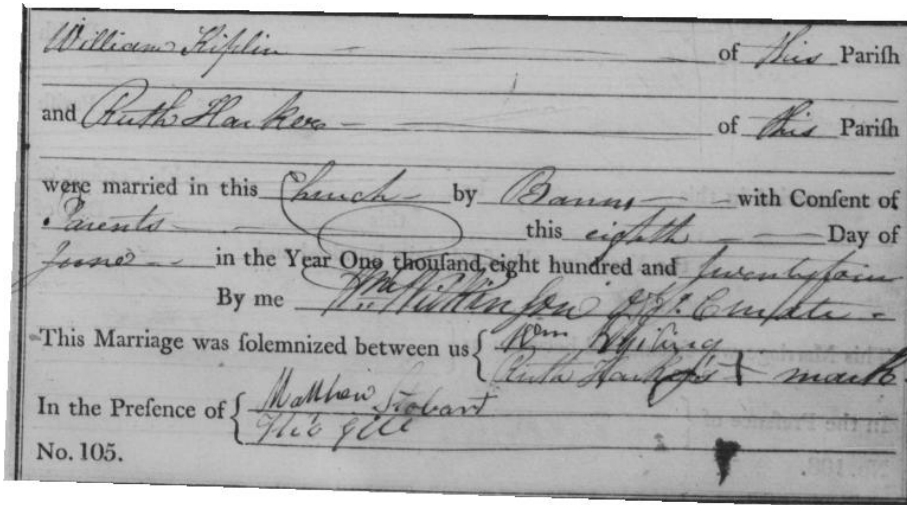 William Kiplin of this Pariſh
and Ruth Harker of this Pariſh
were married in this Church by Banns with Conſent of
Parents this eighth Day of
June in the Year One thouſand eight hundred and twentyfour
By me Wm. Wilkinson Curate
This Marriage was ſolemnized between us { Wm
Ruth Harker's + mark
In the Preſence of { Matthew Stobart
Gill
No. 105.